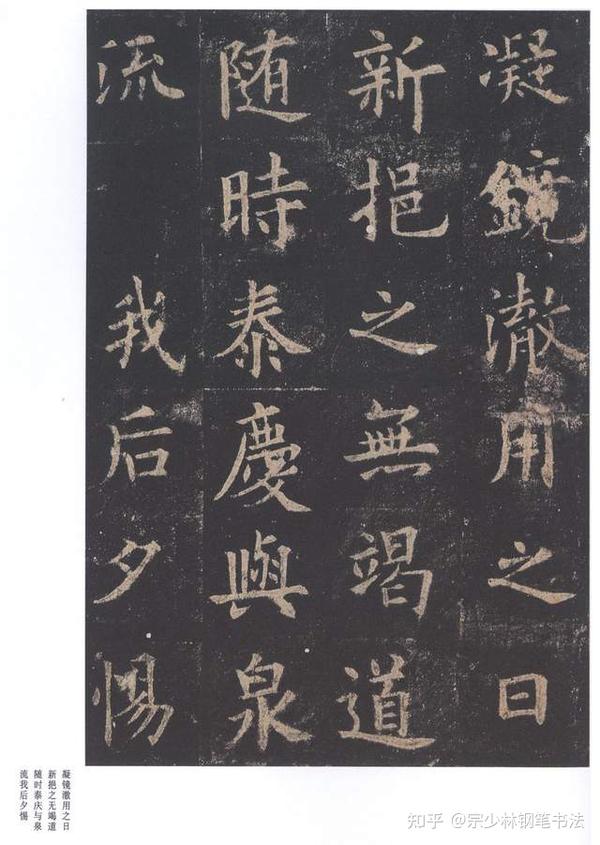 凝鏡澈用之日
新挹之無竭道
随時泰慶與泉
流我后夕惕
凝镜澈用之日
新挹之无竭道
随时泰庆与泉
流我后夕惕
知乎 @宗少林钢笔书法